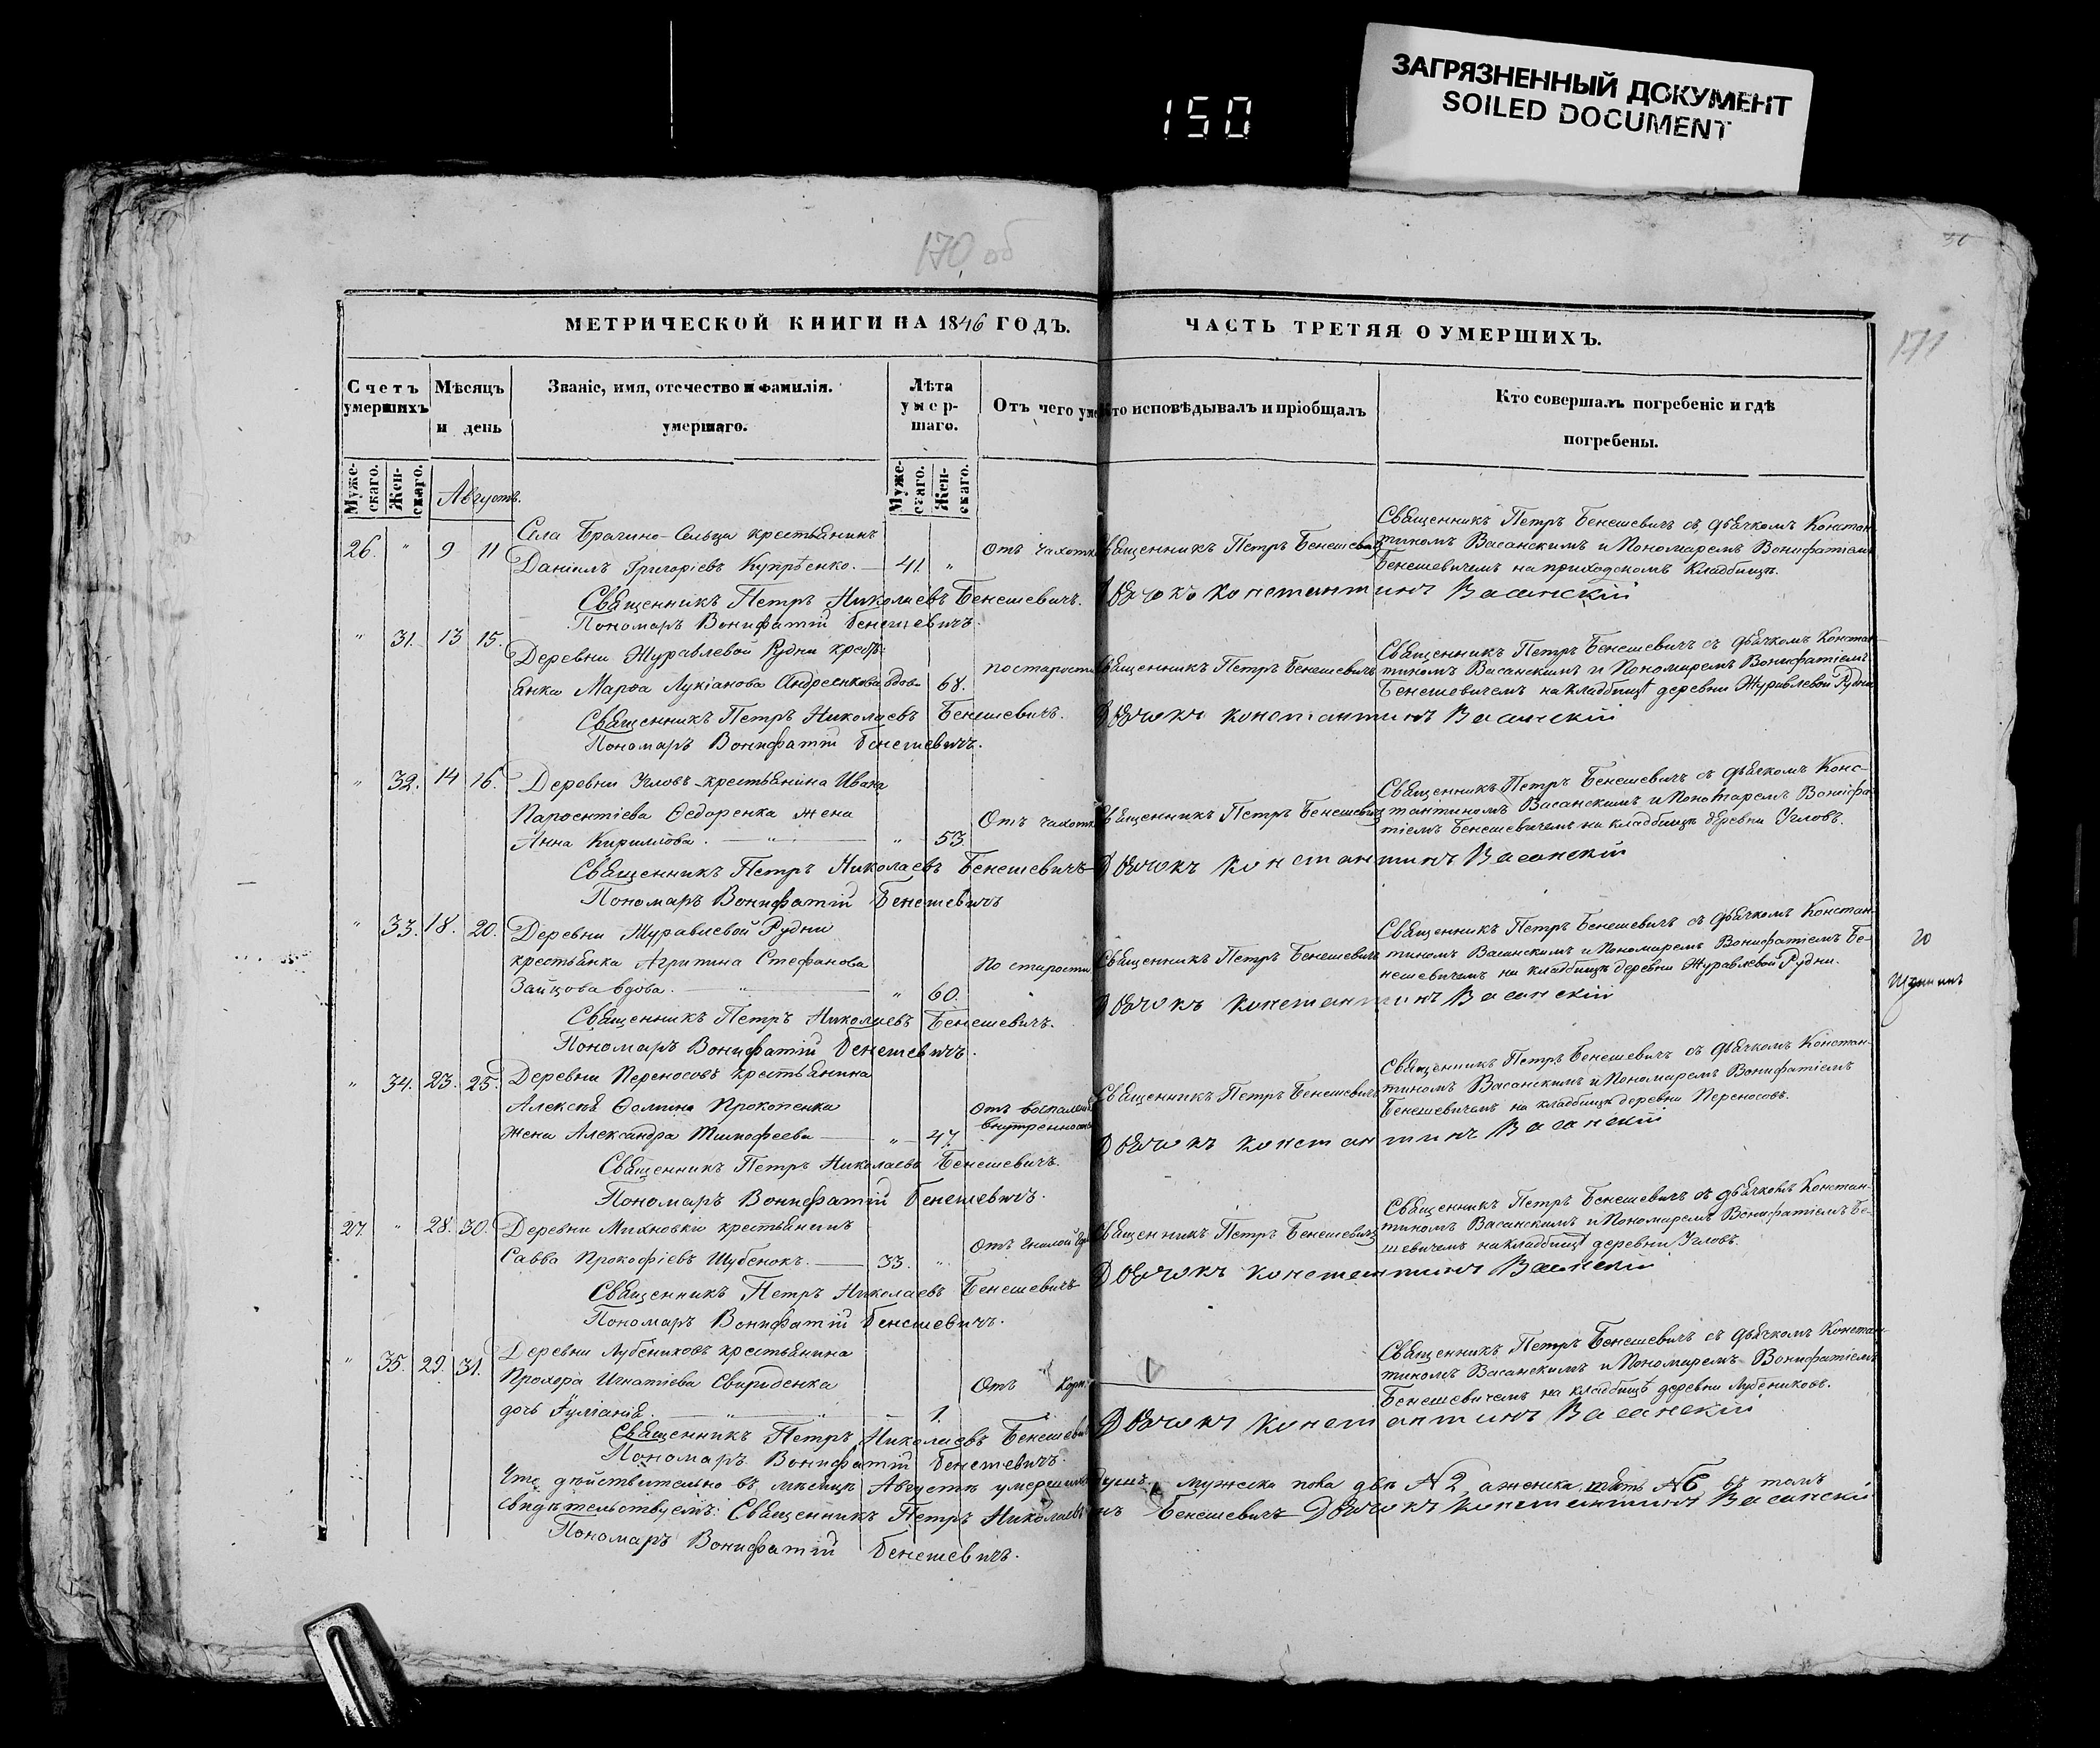 150
ЗАГРЯЗНЕННЫЙ ДОКУМЕНТ
SOILED DOCUMENT
170 об
171
МЕТРИЧЕСКОЙ КНИГИ НА 1846 ГОДЪ.
ЧАСТЬ ТРЕТЯЯ О УМЕРШИХЪ.
Счетъ умершихъ
Мѣсяцъ и день
Званіе, имя, отечество и фамилія.
умершаго.
Лѣта умершаго.
Отъ чего
исповѣдывалъ и пріобщалъ
Кто совершалъ погребеніе и гдѣ
погребены.
Мужескаго. Женскаго.
Августъ.
Мужескаго. Женскаго.
Села Брагино-Сельца крестьянинъ
26. " 9 11
Даніилъ Григоріевъ Купрѣенко. 41. "
Отъ чахотки
Священникъ Петръ Бенешевичъ
Священникъ Петръ Бенешевичъ съ дьячкомъ Констан-
тиномъ Васанскимъ и Пономаремъ Вонифатіемъ
Бенешевичемъ на приходскомъ кладбищѣ.
Священникъ Петръ Николаевъ Бенешевичъ. Дьячокъ Константинъ Васанскій
Пономаръ Вонифатій Бенешевичъ.
" 31. 13 15.
Деревни Журавлевой Рудни кресть-
янка Марѳа Лукіанова Андреенкова вдова 68.
по старости
Священникъ Петръ Бенешевичъ
Священникъ Петръ Бенешевичъ съ дьячкомъ Констан-
тиномъ Васанскимъ и Пономаремъ Вонифатіемъ
Бенешевичемъ на кладбищѣ деревни Журавлевой Рудни
Священникъ Петръ Николаевъ Бенешевичъ. Дьячокъ Константинъ Васанскій
Пономаръ Вонифатій Бенешевичъ.
" 32. 14 16.
Деревни Угловъ крестьянина Ивана
Пароентіева Ѳедоренка жена
Анна Кириллова. " " 53.
Отъ чахотки
Священникъ Петръ Бенешевичъ
Священникъ Петръ Бенешевичъ съ дьячкомъ Конс-
тантиномъ Васанскимъ и Пономаремъ Вонифа-
тіемъ Бенешевичемъ на кладбищѣ деревни Угловъ.
Священникъ Петръ Николаевъ Бенешевичъ Дьячокъ Константинъ Васанскій
Пономаръ Вонифатій Бенешевичъ
" 33. 18. 20.
Деревни Журавлевой Рудни
крестьянка Агрипина Стефанова
Зайцова вдова. " " 60.
По старости
Священникъ Петръ Бенешевичъ
Священникъ Петръ Бенешевичъ съ дьячкомъ Констан-
тиномъ Васанскимъ и Пономаремъ Вонифатіемъ Бе-
нешевичемъ на кладбищѣ деревни Журавлевой Рудни.
20
Священникъ Петръ Николаевъ Бенешевичъ. Дьячокъ Константинъ Васанскій
Пономаръ Вонифатій Бенешевичъ.
" 34. 23. 25.
Деревни Переносовъ крестьянина
Алексѣя Ѳомина Прокопенка
жена Александра Тимофеева " 47.
Отъ воспаленія
внутренностей
Священникъ Петръ Бенешевичъ
Священникъ Петръ Бенешевичъ съ дьячкомъ Констан-
тиномъ Васанскимъ и Пономаремъ Вонифатіемъ
Бенешевичемъ на кладбищѣ деревни Переносовъ.
Священникъ Петръ Николаевъ Бенешевичъ. Дьячокъ Константинъ Васанскій
Пономаръ Вонифатій Бенешевичъ.
27. " 28. 30.
Деревни Михновки крестьянинъ
Савва Прокофіевъ Шубенокъ. 33. "
Отъ гнилой
Священникъ Петръ Бенешевичъ
Священникъ Петръ Бенешевичъ съ дьячкомъ Констан-
тиномъ Васанскимъ и Пономаремъ Вонифатіемъ Бе-
шевичемъ на кладбищѣ деревни Угловъ.
Священникъ Петръ Николаевъ Бенешевичъ Дьячокъ Константинъ Васанскій
Пономаръ Вонифатій Бенешевичъ.
" 35. 29. 31.
Деревни Лубениковъ крестьянина
Прохора Игнатіева Свириденка
дочь Іуліанія. " " 1.
Отъ кори
Священникъ Петръ Бенешевичъ съ дьячкомъ Констан-
тиномъ Васанскимъ и Пономаремъ Вонифатіемъ
Бенешевичемъ на кладбищѣ деревни Лубениковъ.
Священникъ Петръ Николаевъ Бенешевичъ Дьячокъ Константинъ Васанскій
Пономаръ Вонифатій Бенешевичъ.
Что дѣйствительно въ мѣсяцѣ Августѣ умершихъ душъ мужеска пола двѣ №2, а женска №6 въ томъ
свидѣтельствуемъ: Священникъ Петръ Николаевъ Бенешевичъ Дьячокъ Константинъ Васанскій
Пономаръ Вонифатій Бенешевичъ.